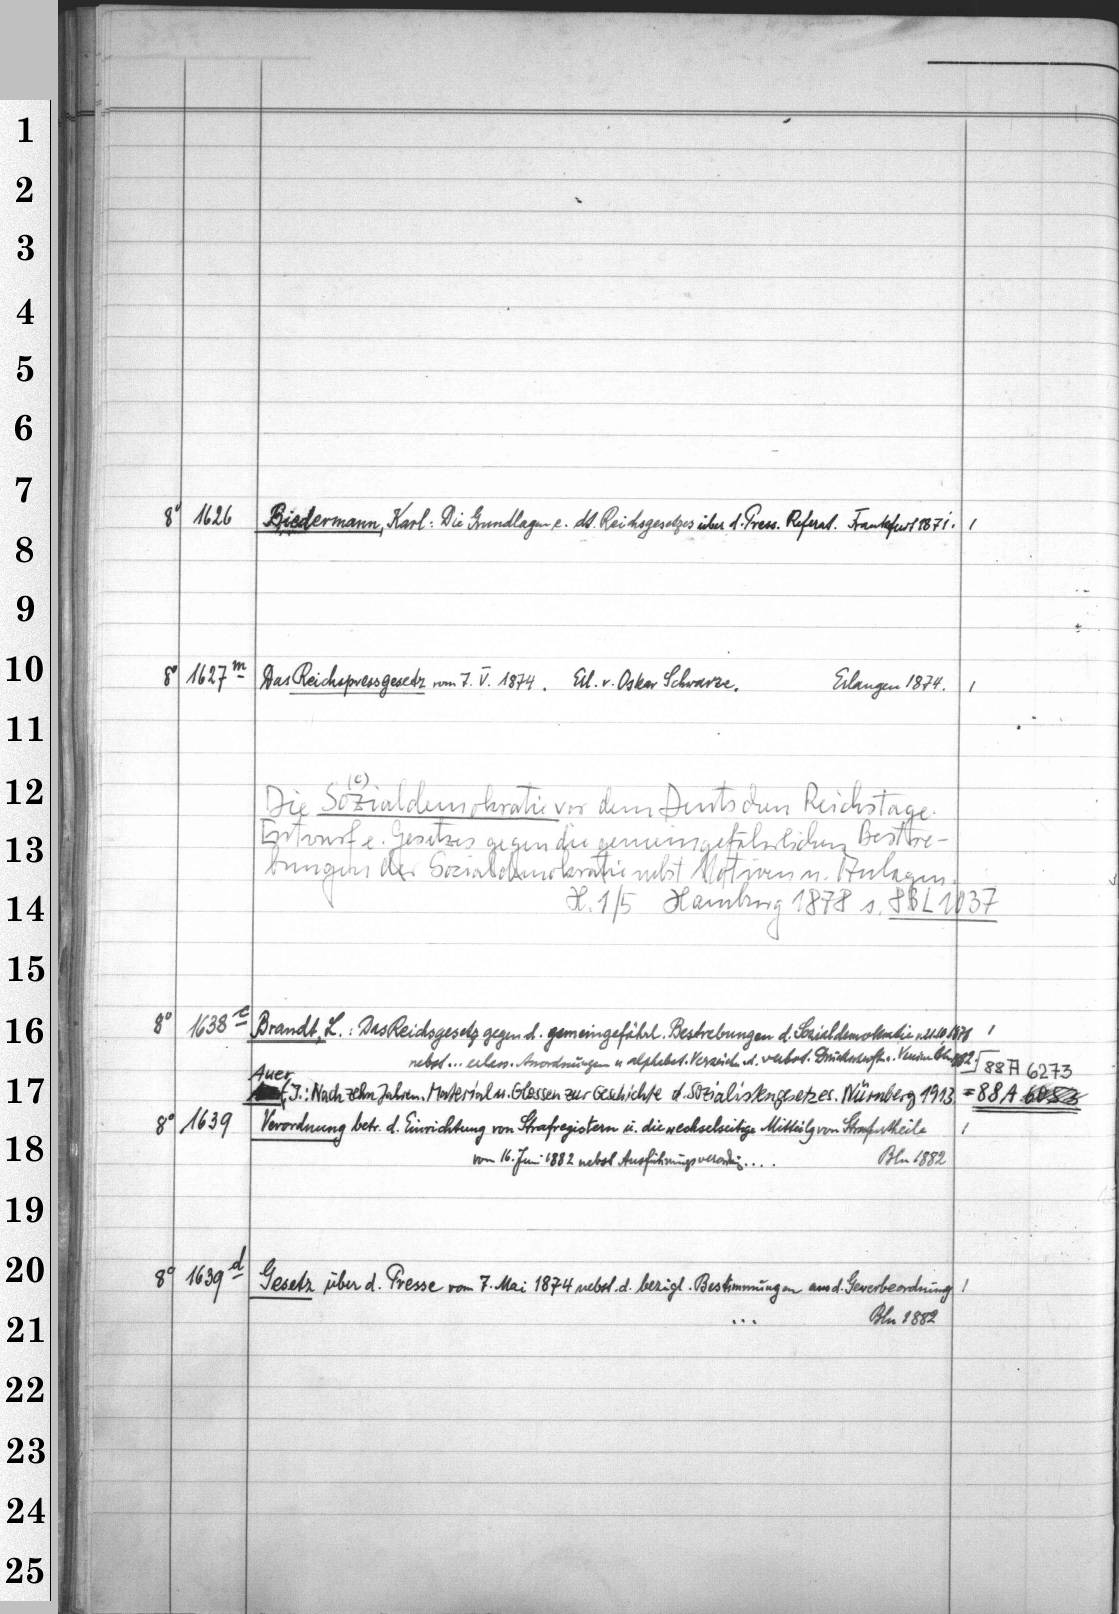 1
2
3
4
5
6
7
8° 1626 Biedermann, Karl: Die Grundlagen e. dt. Reichsgesetzes über d. Press. Referat. Frankfurt 1871. 1
8
9
10
8° 1627 m Das Reichspressgesetz vom 7. V. 1874. Erl. v. Oskar Schwarze. Erlangen 1874. 1
11
12
(c)
Die Sozialdemokratie vor dem Deutschen Reichstage.
13
Entwurf e. Gesetzes gegen die gemeingefährlichen Bestre-
bungen der Sozialdemokratie nebst Motiven u. Anlagen.
14
H. 1/5 Hamburg 1878 s. 8BL 1037
15
16
8° 1638 c Brandt, L.: Das Reichsgesetz gegen d. gemeingefährl. Bestrebungen d. Sozialdemokratie v. 21.10.1878 1
nebst... erlass. Anordnungen u. alphabet. Verzeichn. d. verbot. Druckschrift u. Vereine Bln 88 A 6273
17
Auer, J.: Nach zehn Jahren. Material u. Glossen zur Geschichte d. Sozialistengesetzes. Nürnberg 1913 = 88 A
8° 1639 Verordnung betr. d. Einrichtung von Strafregistern u. die wechselseitige Mitteilg von Strafurtheile 1
18
vom 16. Juni 1882 nebst Ausführungsverordng.... Bln 1882
19
20
8° 1639 d Gesetz über d. Presse vom 7. Mai 1874 nebst d. bezigl. Bestimmungen aus d. Gewerbeordnung 1
21
... Bln 1882
22
23
24
25